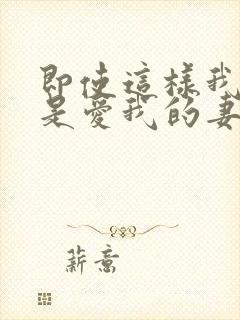 即使這樣我
是愛我的妻
薪意